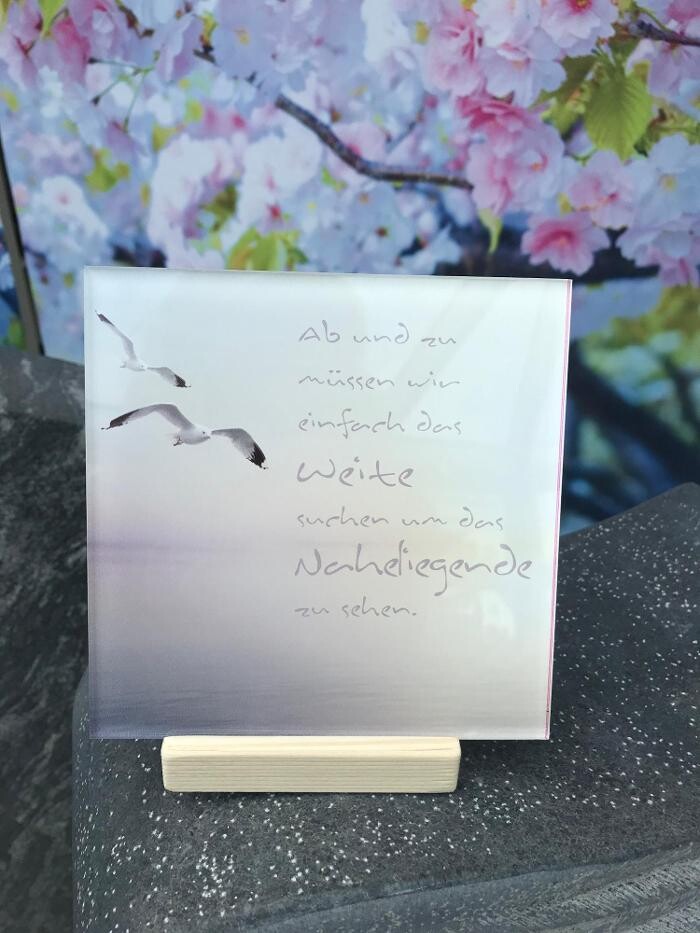 Ab und zu
müssen wir
einfach das
Weite
suchen um das
Naheliegende
zu sehen.